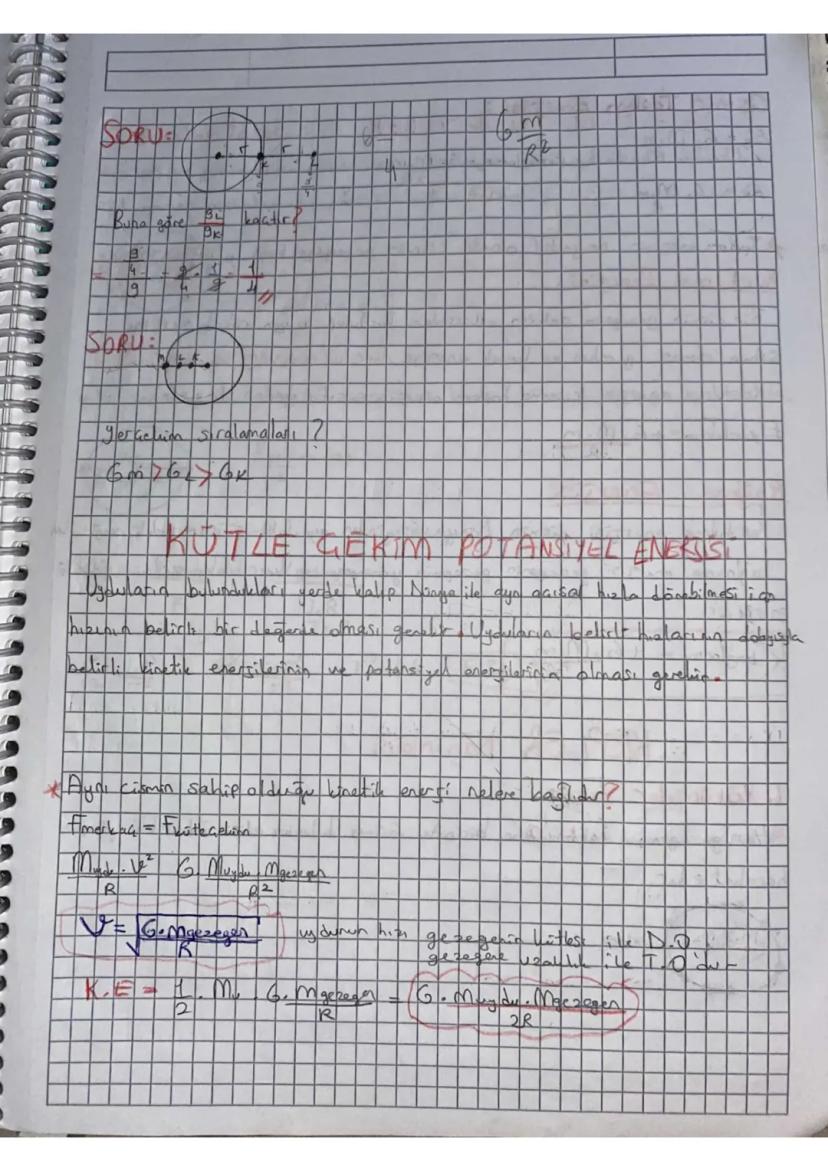 SORU:
r r
K L
g
g/4
G m/R²
Buna göre gL/gK kaçtır?
= g/4/g = g/4 · 1/g = 1/4 //
SORU:
M L K
Yerçekim sıralamaları ?
Gm > GL > GK
KÜTLE ÇEKİM POTANSİYEL ENERJİSİ
Uyduların bulundukları yerde kalıp Dünya ile aynı açısal hızla dönebilmesi için
hızının belirli bir değerde olması gerekir. Uyduların belirli hızlarının dolayısıyla
belirli kinetik enerjilerinin ve potansiyel enerjilerinin olması gerekir.
* Aynı cismin sahip olduğu kinetik enerji nelere bağlıdır?
Fmerkaç = Fkütleçekim
Muydu . V²/R G. Muydu . Mgezegen/R²
V = √G.Mgezegen/R uydunun hızı gezegenin kütlesi ile D.O
gezegene uzaklık ile T.O'dur
K.E = 1/2 . Mu . G. Mgezegen/R = G . Muydu . Mgezegen/2R